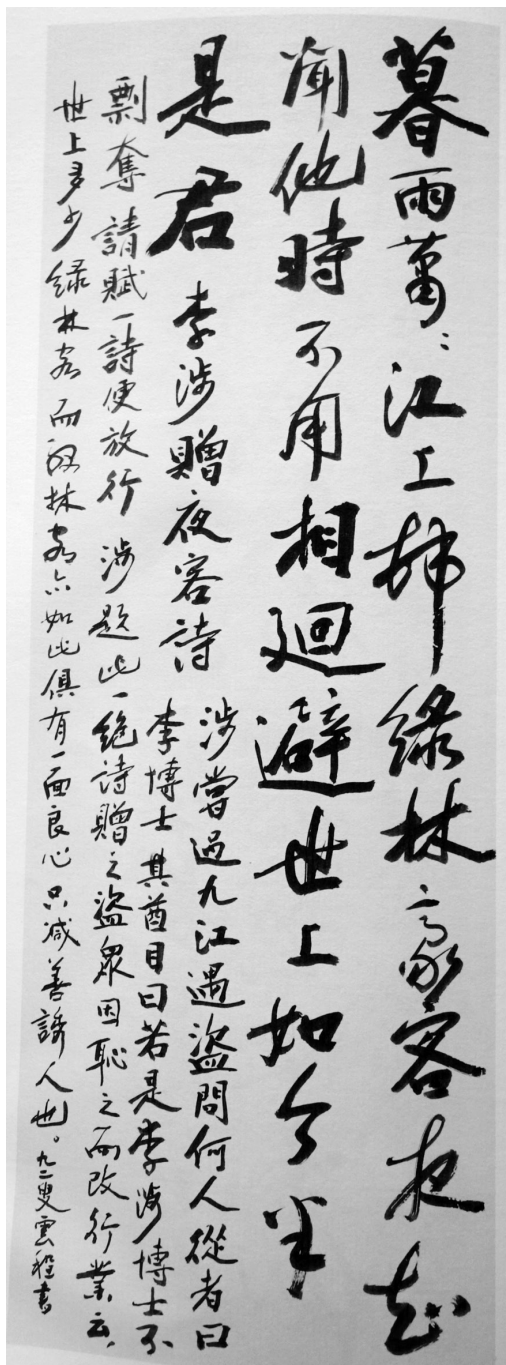 暮雨蕭〻江上邨綠林豪客夜知
聞他時不用相迴避世上如今半
是君 李涉贈夜客詩
涉嘗過九江遇盜問何人從者曰
李博士其酋目曰若是李涉博士不
剽奪請賦一詩便放行 涉題此一絕詩贈之盜眾因恥之而改行業云
世上多少綠林客而綠林客亦如此俱有一面良心只減善誘人也。九二叟雲程書